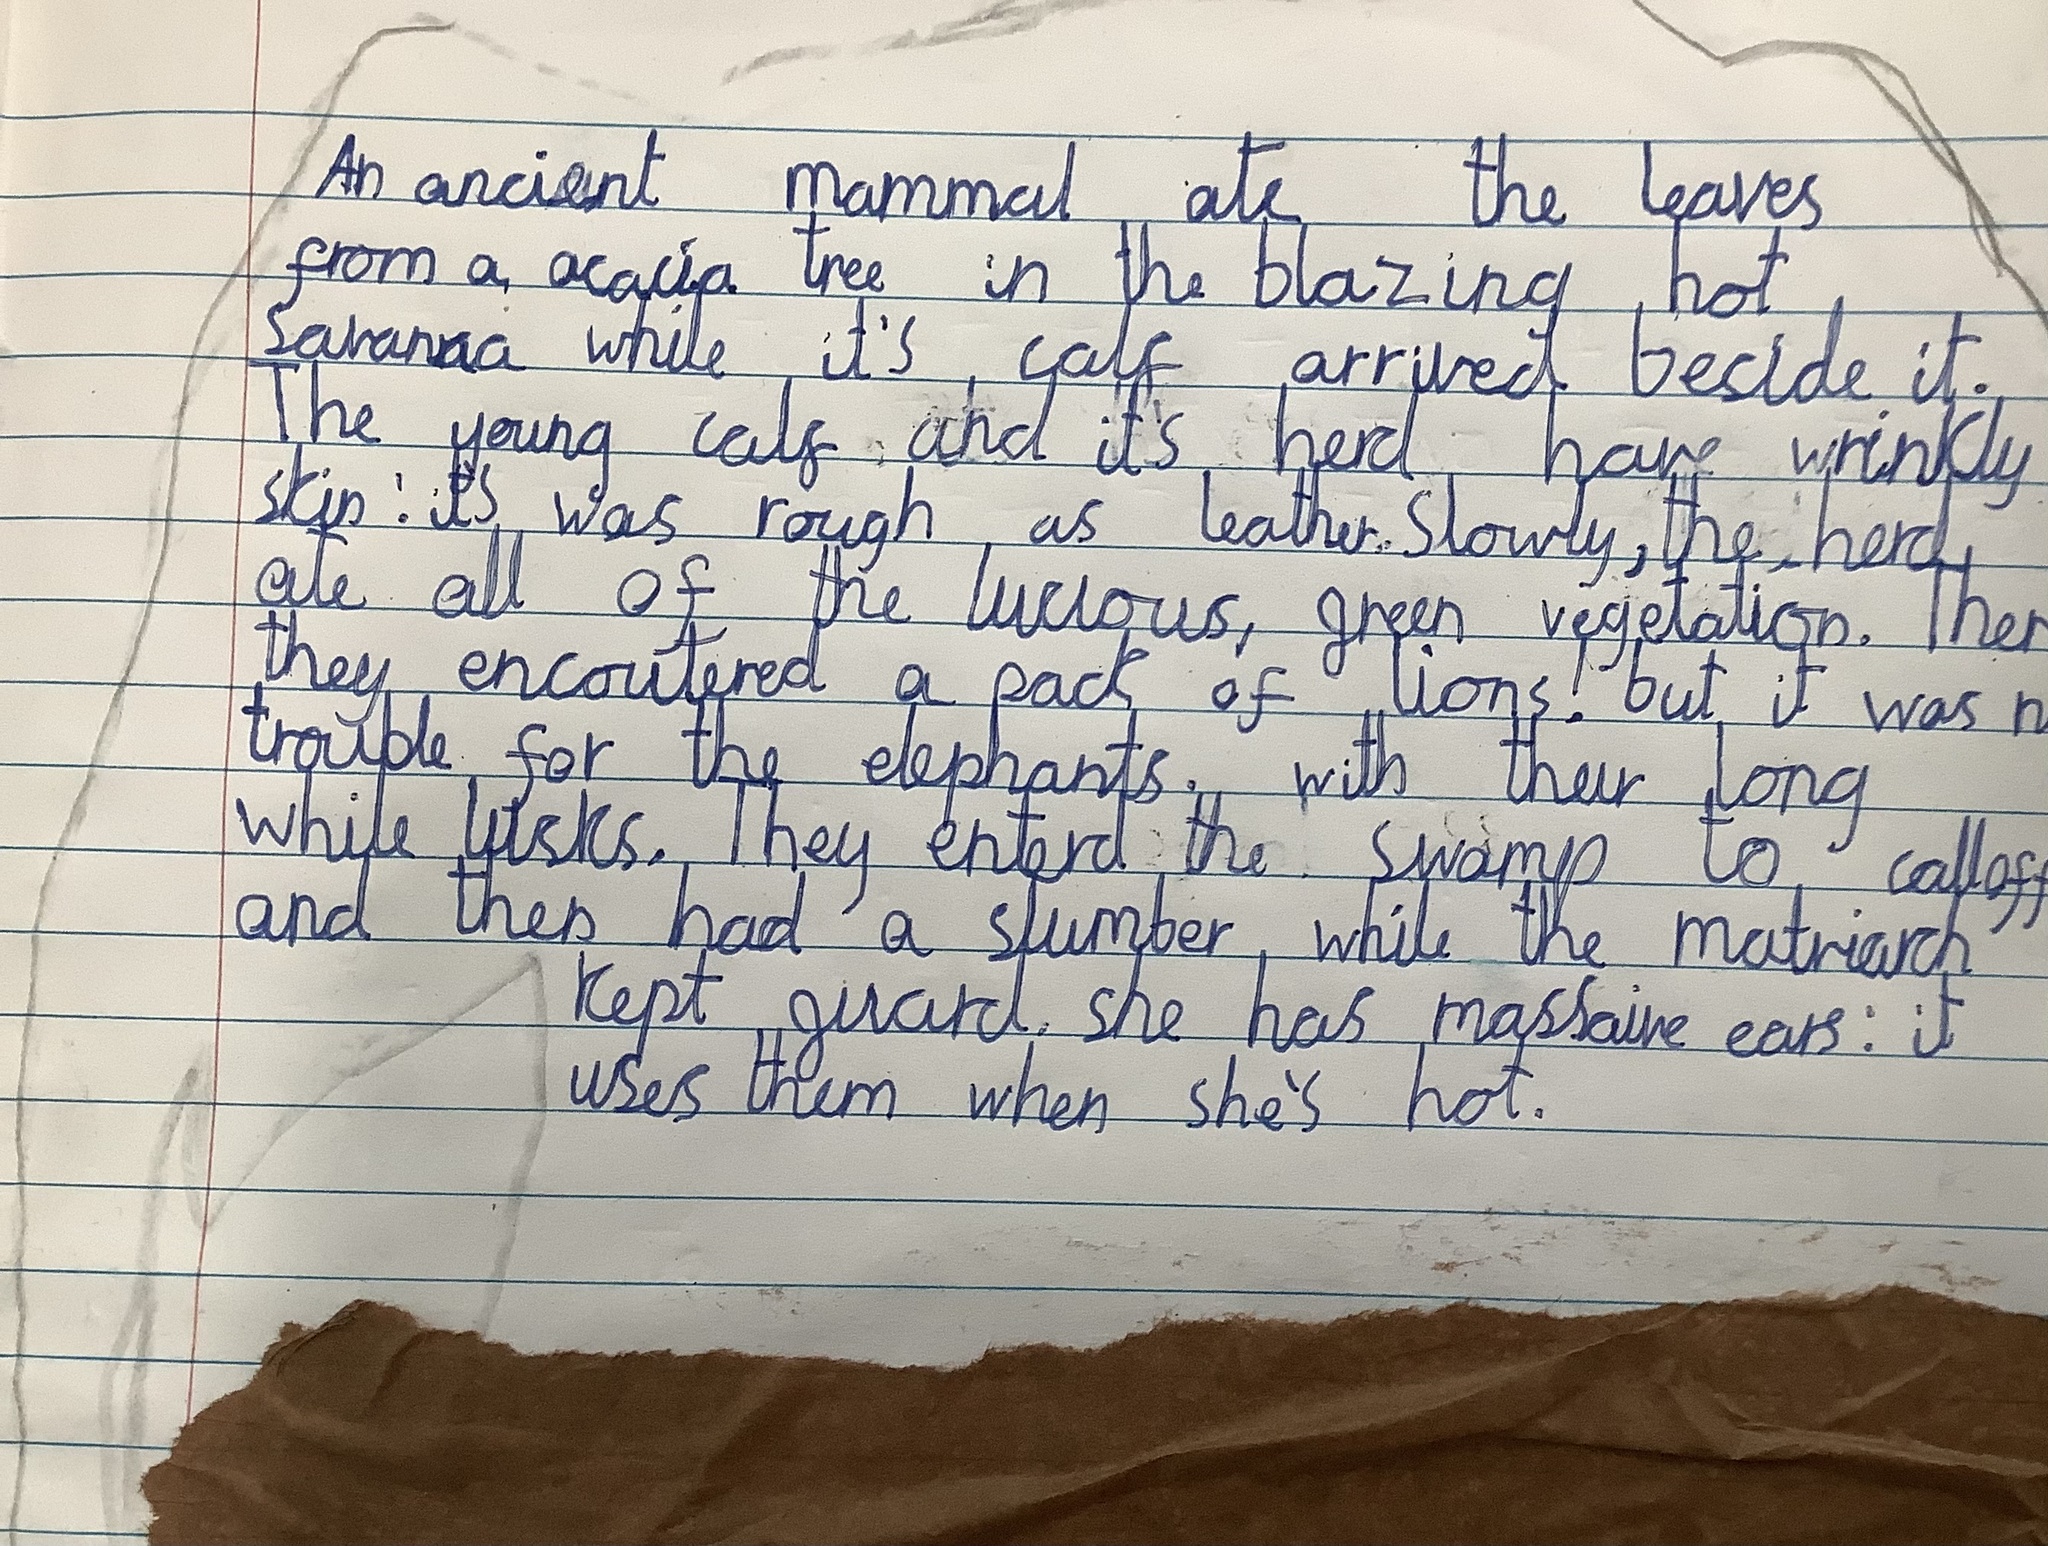 An ancient mammal ate the leaves
from a acacia tree in the blazing hot
Savanna while it's calf arrived beside it.
The young calf and it's herd have wrinkly
skin: it's was rough as leather. Slowly, the herd
ate all of the lucious, green vegetation. Then
they encoutered a pack of lions! but it was
trouble for the elephants. with their long
while tusks. They enterd the swamp to calloff
and then had a slumber while the matriarch
kept guard. she has massaive ears: it
uses them when she's hot.